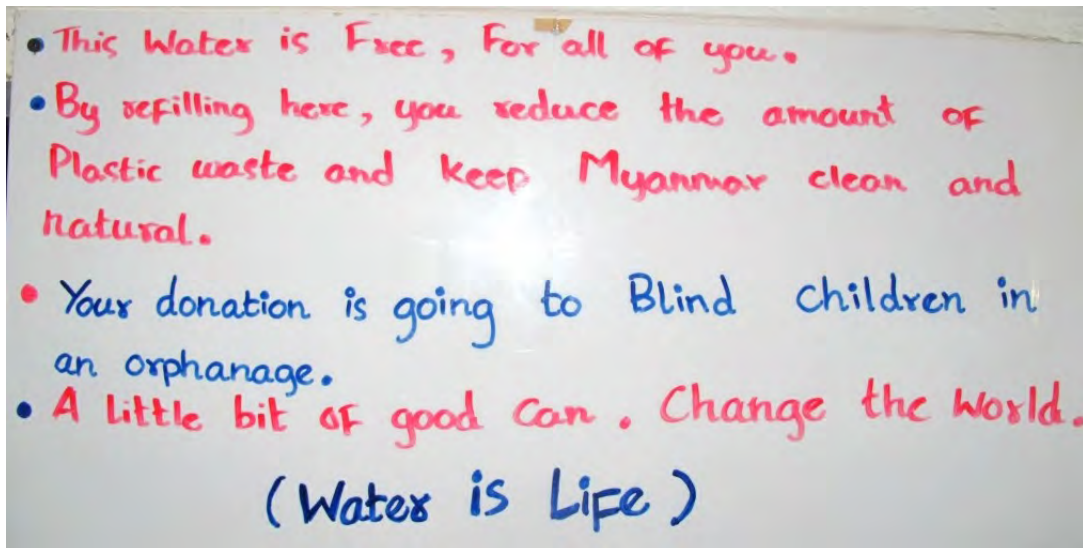 • This Water is Free, For all of you.
• By refilling here, you reduce the amount of
Plastic waste and keep Myanmar clean and
natural.
• Your donation is going to Blind children in
an orphanage.
• A little bit of good Can. Change the World.
(Water is Life)